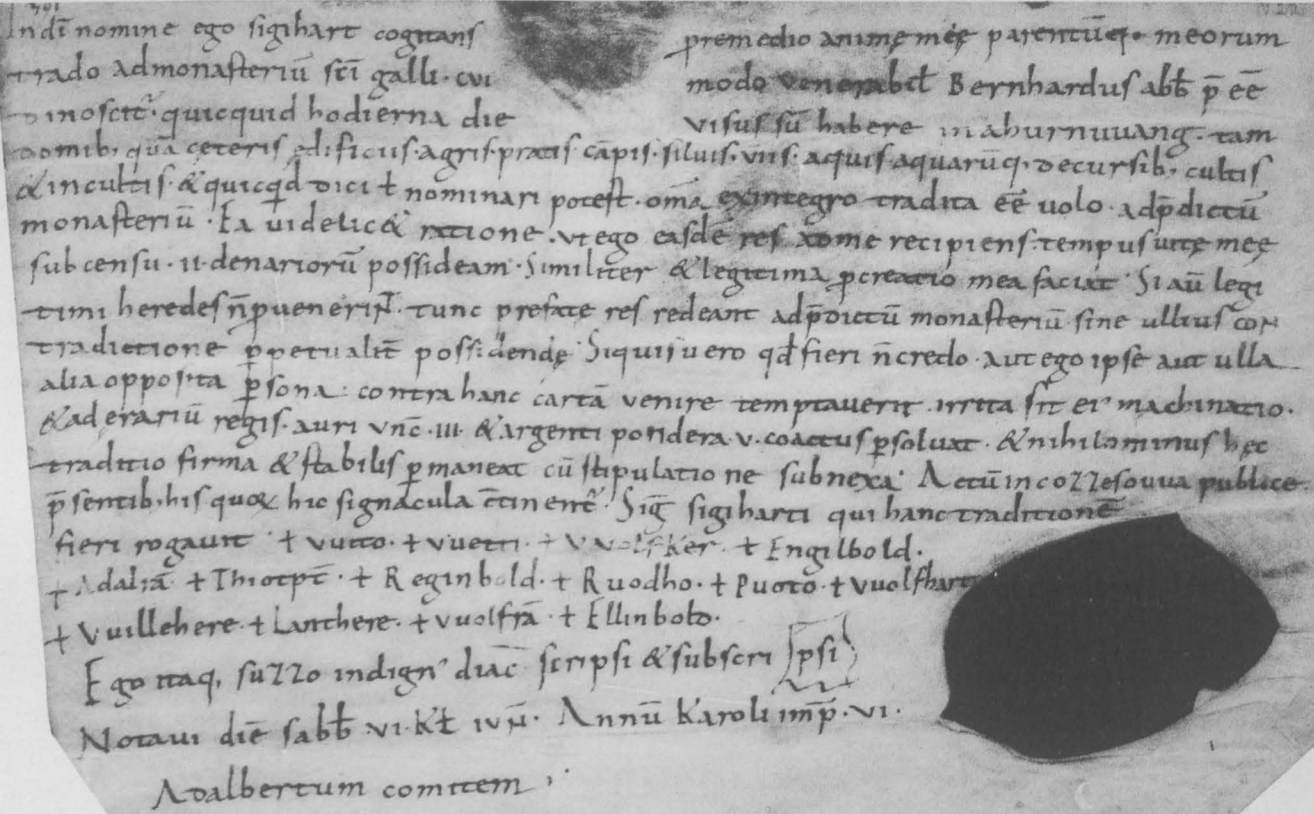 In dī nomine ego sigihart cogitans p remedio animę meę parentūq; meorum
trado ad monasteriū scī galli · cui modo venerabił Bernhardus abb p̄ eē
dinoscit᷑ · quicquid hodierna die visus sū habere in ahurnuuang · tam
domib; quā ceteris ędificiis · agris · pratis cāpis · siluis · viis · aquis aquarūq; decursib; cultis
& incultis · & quicqd dici ł nominari potest · omīa ex integro tradita eē uolo · ad p̄dictū
monasteriū · Ea uidelic& ratione · ut ego easdē res ad me recipiens · tempus uitę meę
sub censu · ii · denariorū possideam · Similiter & legitima pcreatio mea faciat · Si aū legi
timi heredes n̄ puenerint · tunc prefatę res redeant ad p̄dictū monasteriū sine ullius con
tradictione ppetualit̄ possidendę · Si quis uero qđ fieri n̄ credo · aut ego ipse aut ulla
alia opposita psona · contra hanc cartā venire temptauerit · irrita sit ei᾽ machinatio ·
& ad erariū regis · auri vnc̄ · iii · & argenti pondera · v · coactus psoluat · & nihilominus hęc
traditio firma & stabilis pmaneat cū stipulatione subnexa · Actū in cozzesouua publice ·
p̄sentib; his quoꝝ hic signacula c̄tinent᷑ · Sig̅ sigiharti qui hanc traditionē
fieri rogauit · + vutto · + vuetti · + vvolfker · + Engilbold ·
+ Adalrā · + Thiotpt̄ · + Reginbold · + Ruodho · + Puoto · + vuolfhart
+ Vuillehere · + Lanthere · + vuolfrā · + Ellinbold ·
Ego itaq; suzzo indign᾽ diac̄ scripsi & subscri psi
Notaui diē sabb · vi · kł iuń · Annū karoli imp̄ · vi ·
Adalbertum comitem